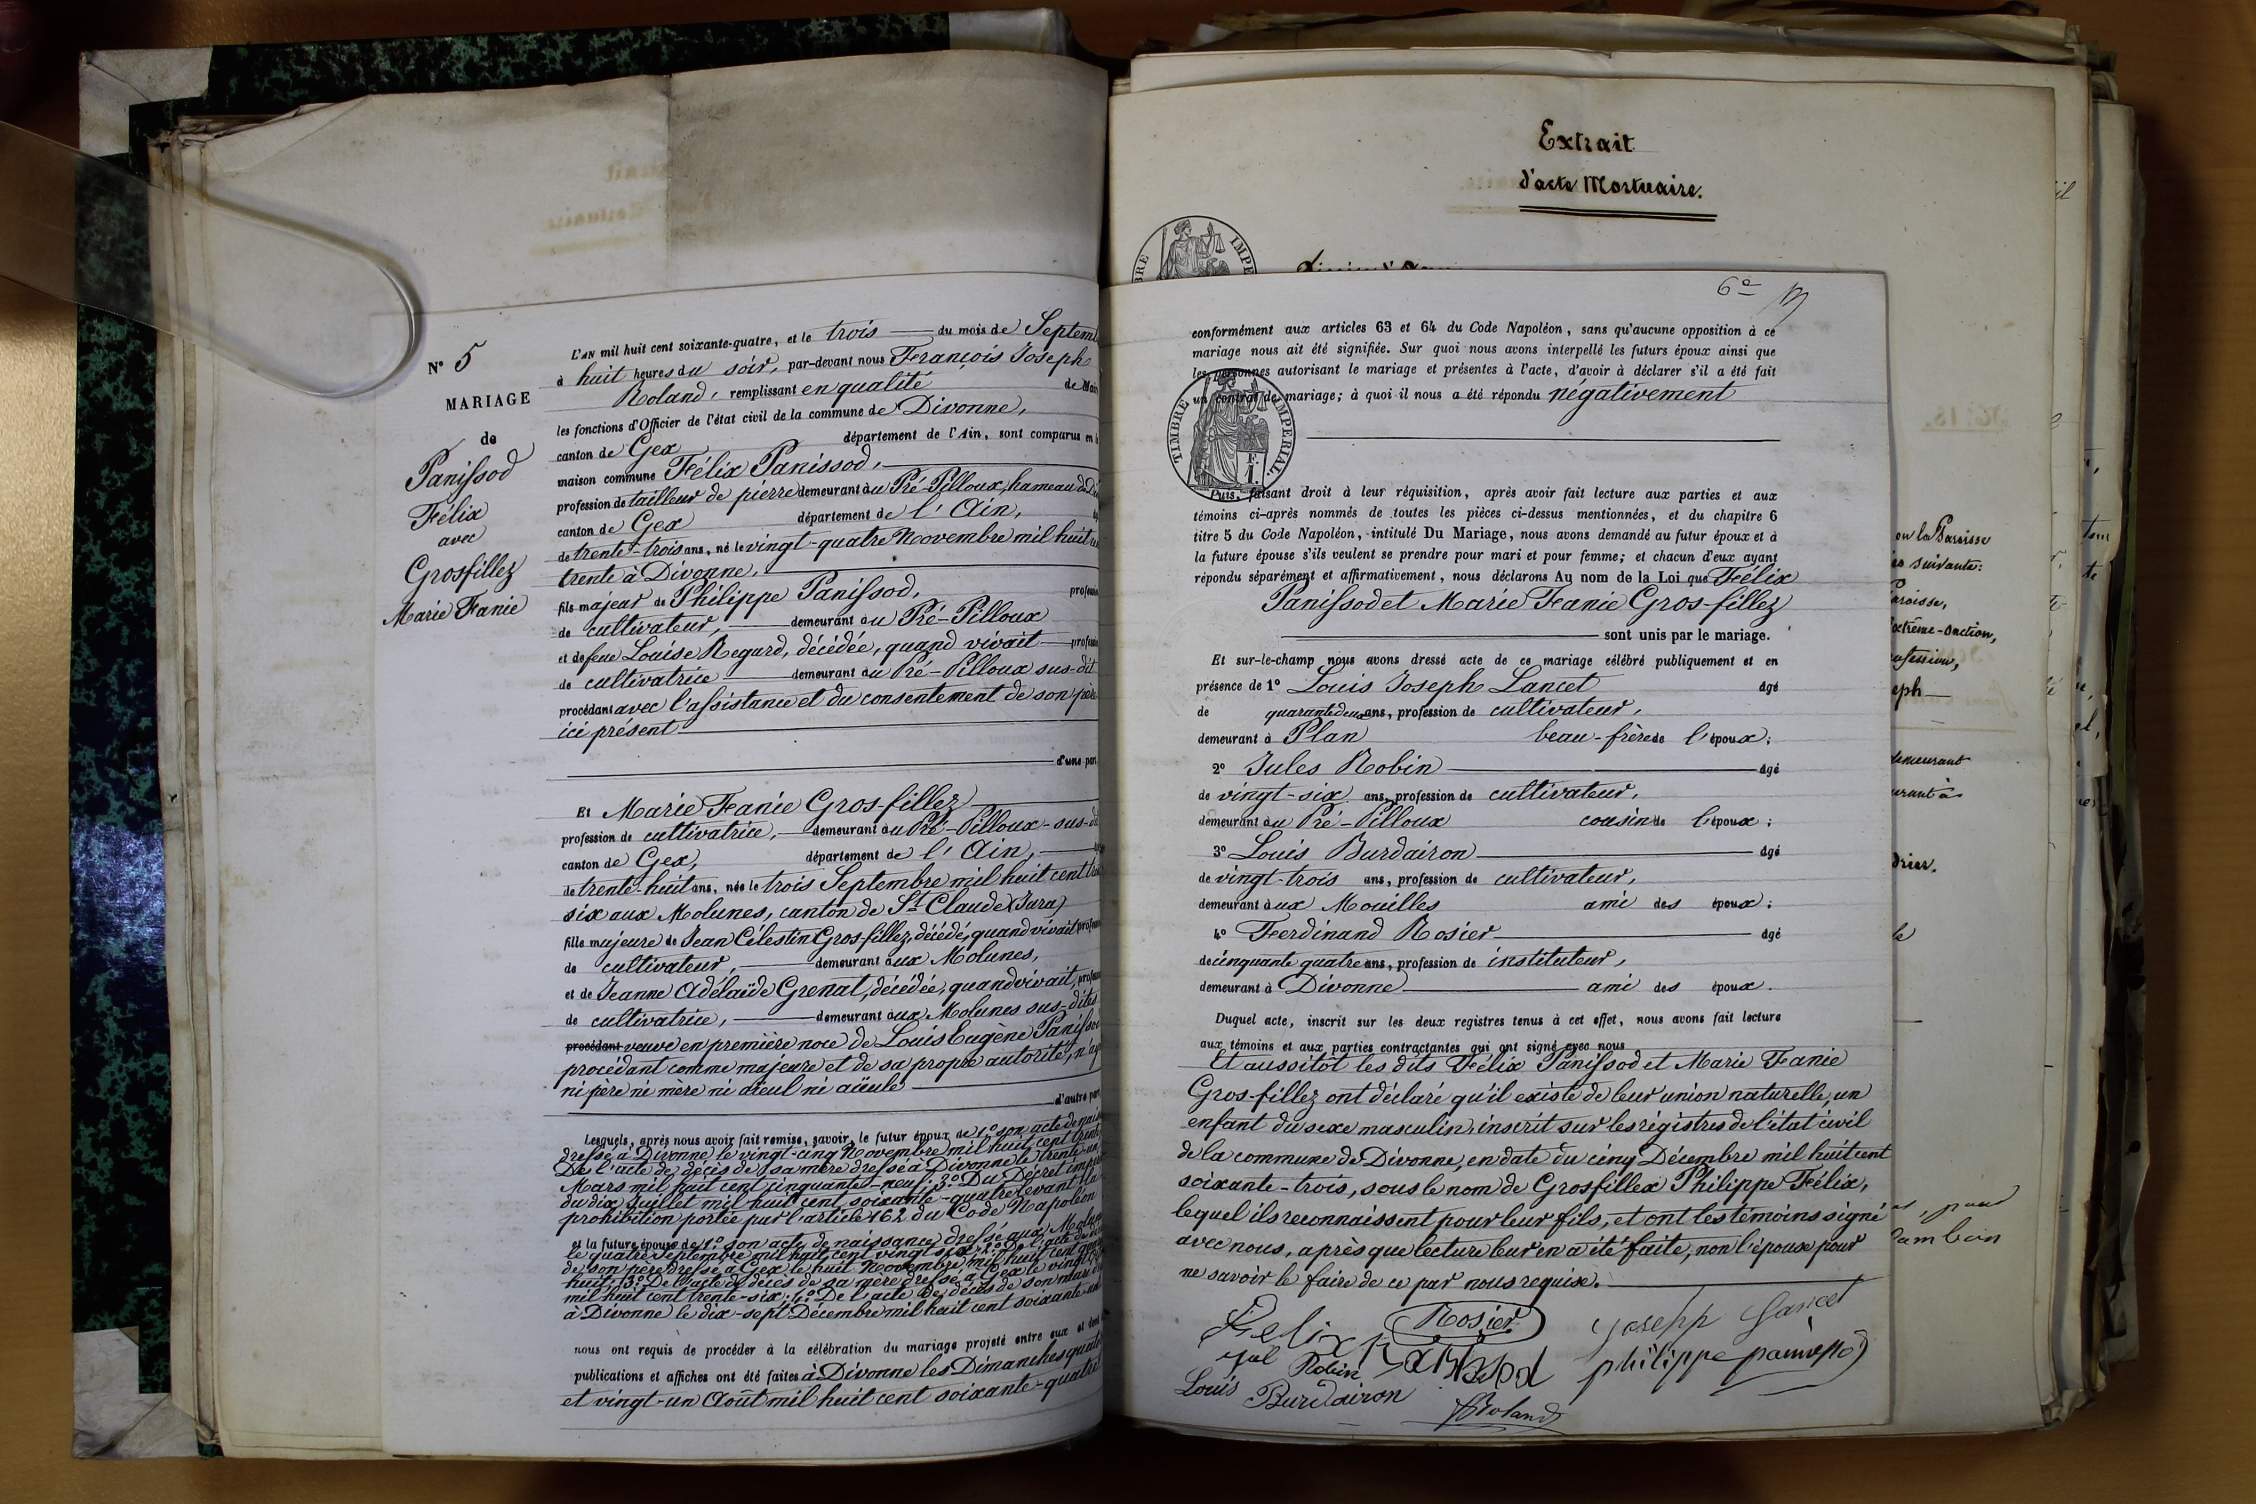 N° 5
MARIAGE
de
Panissod
Félix
avec
Grosfillez
Marie Fanie
L'AN mil huit cent soixante-quatre, et le trois du mois de Septem
à huit heures du soir, par-devant nous François Joseph
Roland, remplissant en qualité de Mair
les fonctions d'Officier de l'état civil de la commune de Divonne,
canton de Gex département de l'Ain, sont comparus en l
maison commune Félix Panissod,
profession de tailleur de pierre demeurant au Pré-Pilloux, hameau de Di
canton de Gex département de l'Ain,
de trente-trois ans, né le vingt-quatre Novembre mil huit
trente à Divonne,
fils majeur de Philippe Panissod, professio
de cultivateur, demeurant au Pré-Pilloux
et de feue Louise Regard, décédée, quand vivait profess
de cultivatrice demeurant au Pré-Pilloux sus-dit
procédant avec l'assistance et du consentement de son père
ici présent
d'une par
Et Marie Fanie Gros-fillez
profession de cultivatrice, demeurant au Pré-Pilloux-sus-d
canton de Gex, département de l'Ain,
de trente-huit ans, née le trois Septembre mil huit cent
six aux Molunes, canton de St Claude (Jura)
fille majeure de Jean Célestin Gros-fillez, décédé, quand vivait profess
de cultivateur, demeurant aux Molunes,
et de Jeanne Adélaïde Grenat, décédée, quand vivait, profess
de cultivatrice, demeurant aux Molunes sus-dites
procédant veuve en première noce de Louis Eugène Panissod
procédant comme majeure et de sa propre autorité, n'ay
ni père ni mère ni aïeul ni aïeule
d'autre par
Lesquels, après nous avoir fait remise, savoir, le futur époux de 1° son acte de nais
dressé à Divonne le vingt-cinq Novembre mil huit cent trente
De l'acte de décès de sa mère dressé à Divonne le trente-un
Mars mil huit cent cinquante-neuf. 3° Du Décret impér
du dix Juillet mil huit cent soixante-quatre levant la
prohibition portée par l'article 162 du Code Napoléon
et la future épouse de 1° son acte de naissance dressé aux Molunes
le quatre Septembre mil huit cent vingt six. 2° De l'acte de
de son père dressé à Gex le huit Novembre mil huit cent
huit; 3° De l'acte de décès de sa mère dressé à Gex le vingt
mil huit cent trente-six. 4° De l'acte de décès de son mari
à Divonne le dix-sept Décembre mil huit cent soixante
nous ont requis de procéder à la célébration du mariage projeté entre eux et dont
publications et affiches ont été faites à Divonne les Dimanches quato
et vingt-un Août mil huit cent soixante-quatre
Extrait
d'acte Mortuaire.
6e
conformément aux articles 63 et 64 du Code Napoléon, sans qu'aucune opposition à ce
mariage nous ait été signifiée. Sur quoi nous avons interpellé les futurs époux ainsi que
les personnes autorisant le mariage et présentes à l'acte, d'avoir à déclarer s'il a été fait
un contrat de mariage; à quoi il nous a été répondu négativement
TIMBRE IMPÉRIAL.
F.
1.
Puis, faisant droit à leur réquisition, après avoir fait lecture aux parties et aux
témoins ci-après nommés de toutes les pièces ci-dessus mentionnées, et du chapitre 6
titre 5 du Code Napoléon, intitulé Du Mariage, nous avons demandé au futur époux et à
la future épouse s'ils veulent se prendre pour mari et pour femme; et chacun d'eux ayant
répondu séparément et affirmativement, nous déclarons Au nom de la Loi que Félix
Panissod et Marie Fanie Gros-fillez
sont unis par le mariage.
Et sur-le-champ nous avons dressé acte de ce mariage célébré publiquement et en
présence de 1° Louis Joseph Lancet âgé
de quarante deux ans, profession de cultivateur,
demeurant à Plan beau-frère de l'époux;
2° Jules Robin âgé
de vingt-six ans, profession de cultivateur,
demeurant au Pré-Pilloux cousin de l'époux;
3° Louis Burdairon âgé
de vingt-trois ans, profession de cultivateur,
demeurant aux Mouilles ami des époux;
4° Ferdinand Rosier âgé
de cinquante quatre ans, profession de instituteur,
demeurant à Divonne ami des époux.
Duquel acte, inscrit sur les deux registres tenus à cet effet, nous avons fait lecture
aux témoins et aux parties contractantes qui ont signé avec nous
Et aussitôt les dits Félix Panissod et Marie Fanie
Gros-fillez ont déclaré qu'il existe de leur union naturelle, un
enfant du sexe masculin, inscrit sur les régistres de l'état civil
de la commune de Divonne, en date du cinq Décembre mil huit cent
soixante-trois, sous le nom de Grosfillex Philippe Félix,
lequel ils reconnaissent pour leur fils, et ont les témoins signé
avec nous, après que lecture leur en a été faite, non l'épouse pour
ne savoir le faire de ce par nous requise.
Félix Panissod
Rosier
Joseph Lancet
Jul Robin
philippe panissod
Louis Burdairon
Roland
ou la Paroisse
suivante:
Paroisse,
extrême-onction,
eph
demeurant